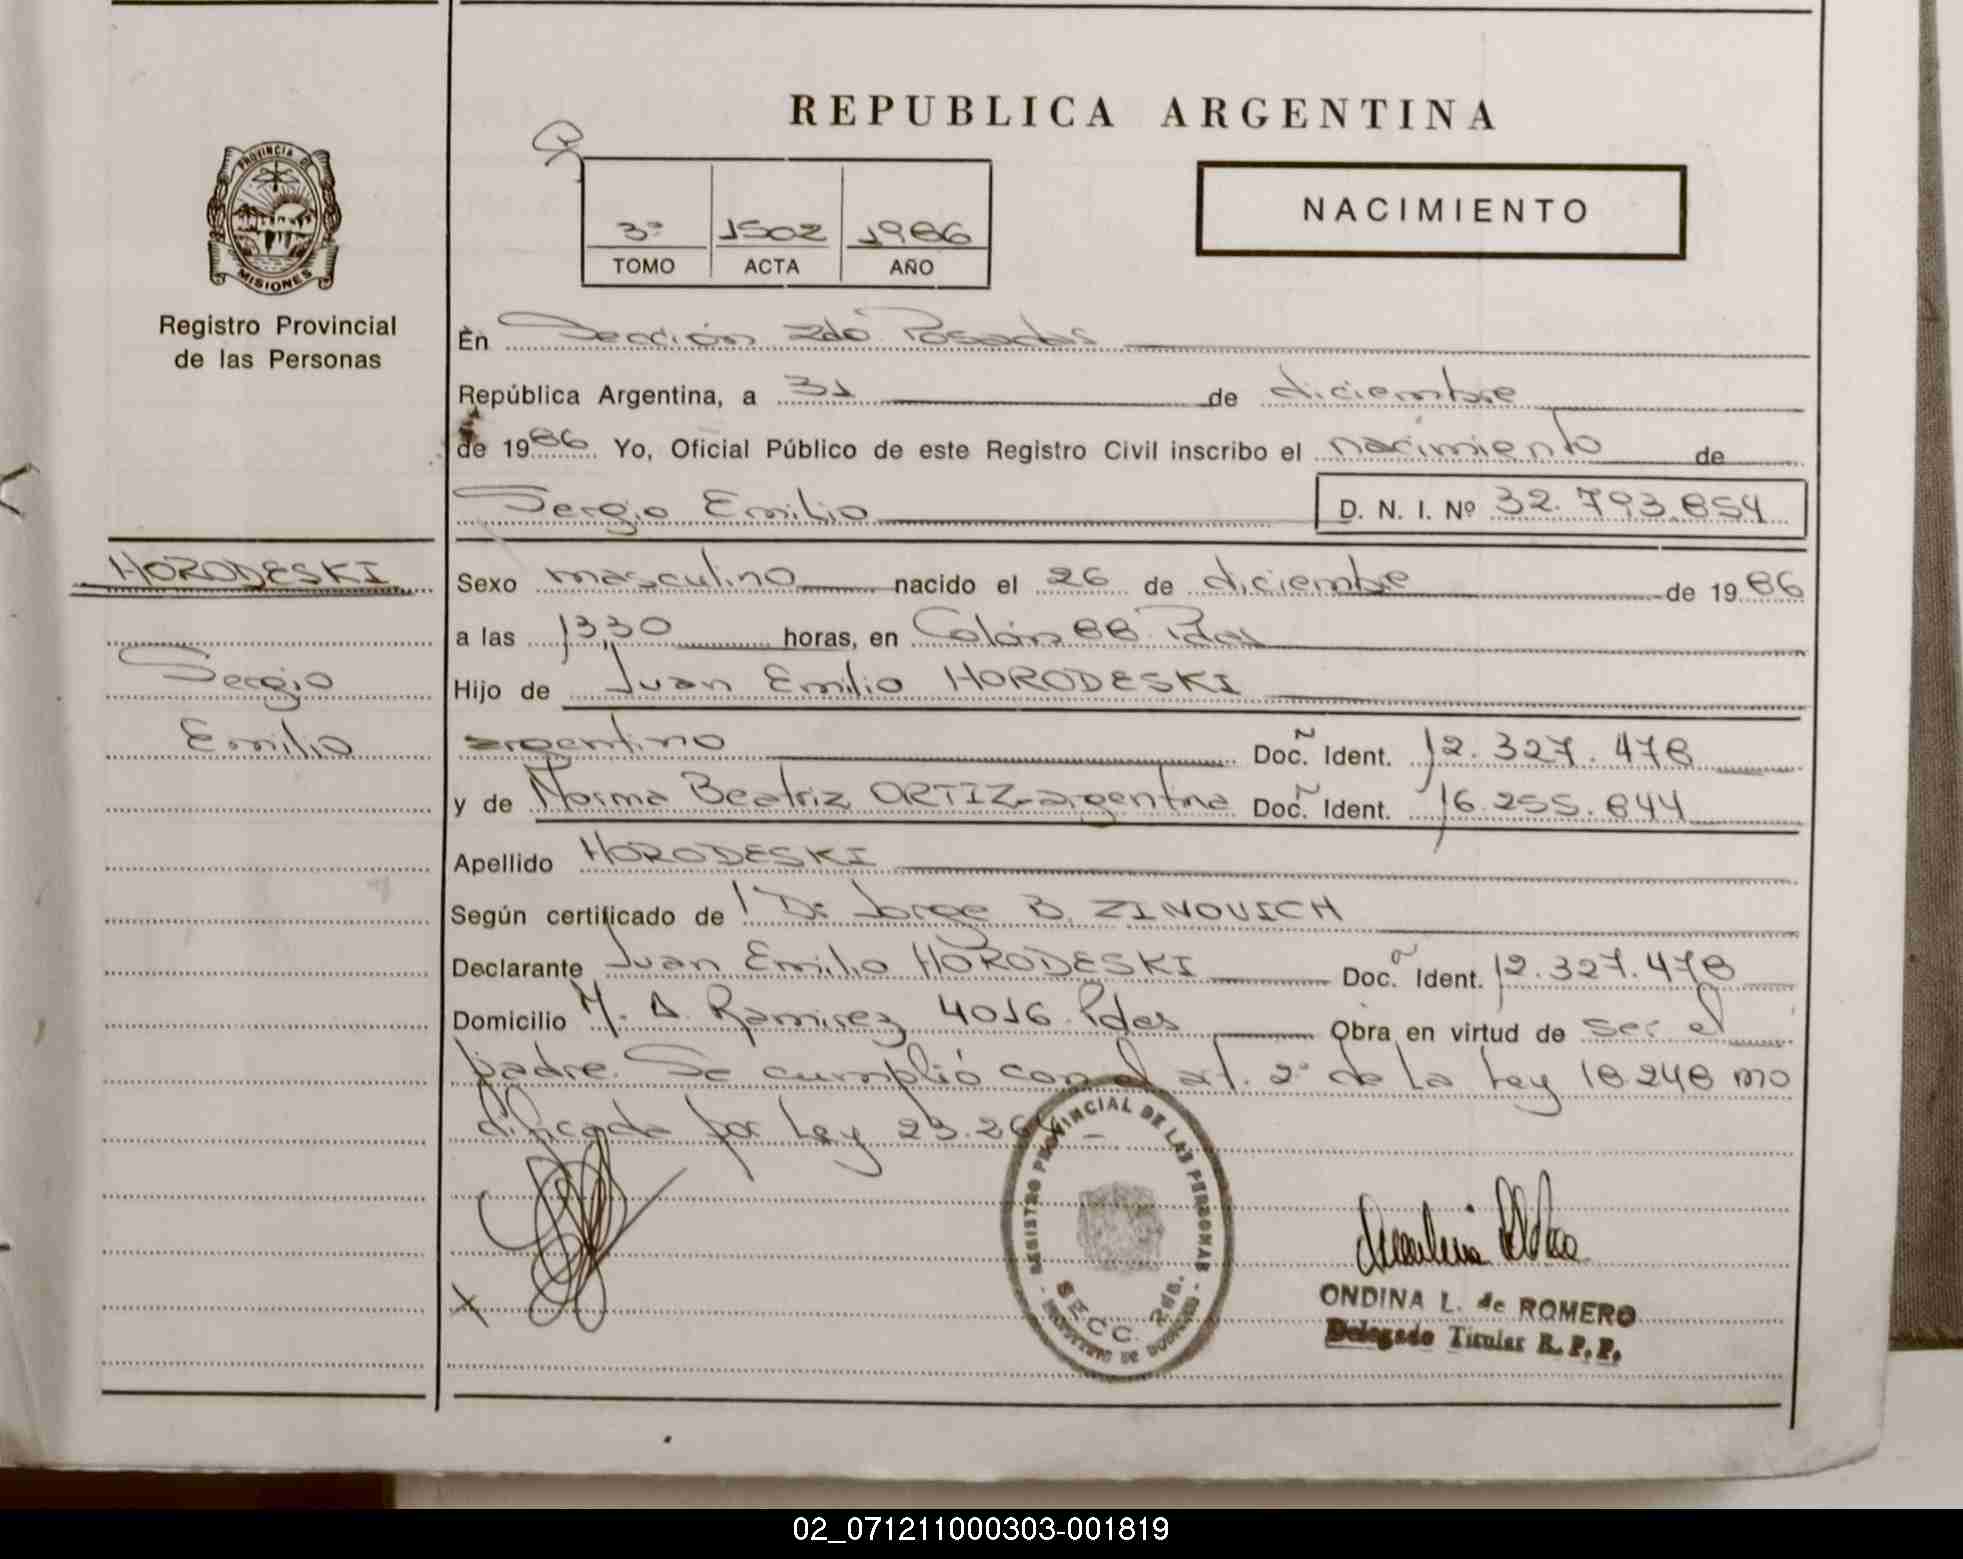 REPUBLICA ARGENTINA
PROVINCIA DE
MISIONES
Registro Provincial
de las Personas
3º 1502 1986
TOMO ACTA AÑO
NACIMIENTO
En Sección 2da Posadas
República Argentina, a 31 de diciembre
de 1986 Yo, Oficial Público de este Registro Civil inscribo el nacimiento de
Sergio Emilio D. N. I. Nº 32.793.854
HORODESKI
Sergio
Emilio
Sexo masculino nacido el 26 de diciembre de 1986
a las 13,30 horas, en Colón 88 Pdas
Hijo de Juan Emilio HORODESKI
argentino Doc. Ident. 12.327.478
y de Norma Beatriz ORTIZ-argentina Doc. Ident. 16.255.844
Apellido HORODESKI
Según certificado de Dr Jorge B. ZINOVICH
Declarante Juan Emilio HORODESKI Doc. Ident. 12.327.478
Domicilio A. Ramirez 4016 Pdas Obra en virtud de ser el
padre. Se cumplió con el art. 2º de la Ley 18248 mo
dificada por Ley 23.264 –
REGISTRO PROVINCIAL DE LAS PERSONAS
SECC. 2da.
ONDINA L. de ROMERO
Delegado Titular R. P. P.
02_071211000303-001819